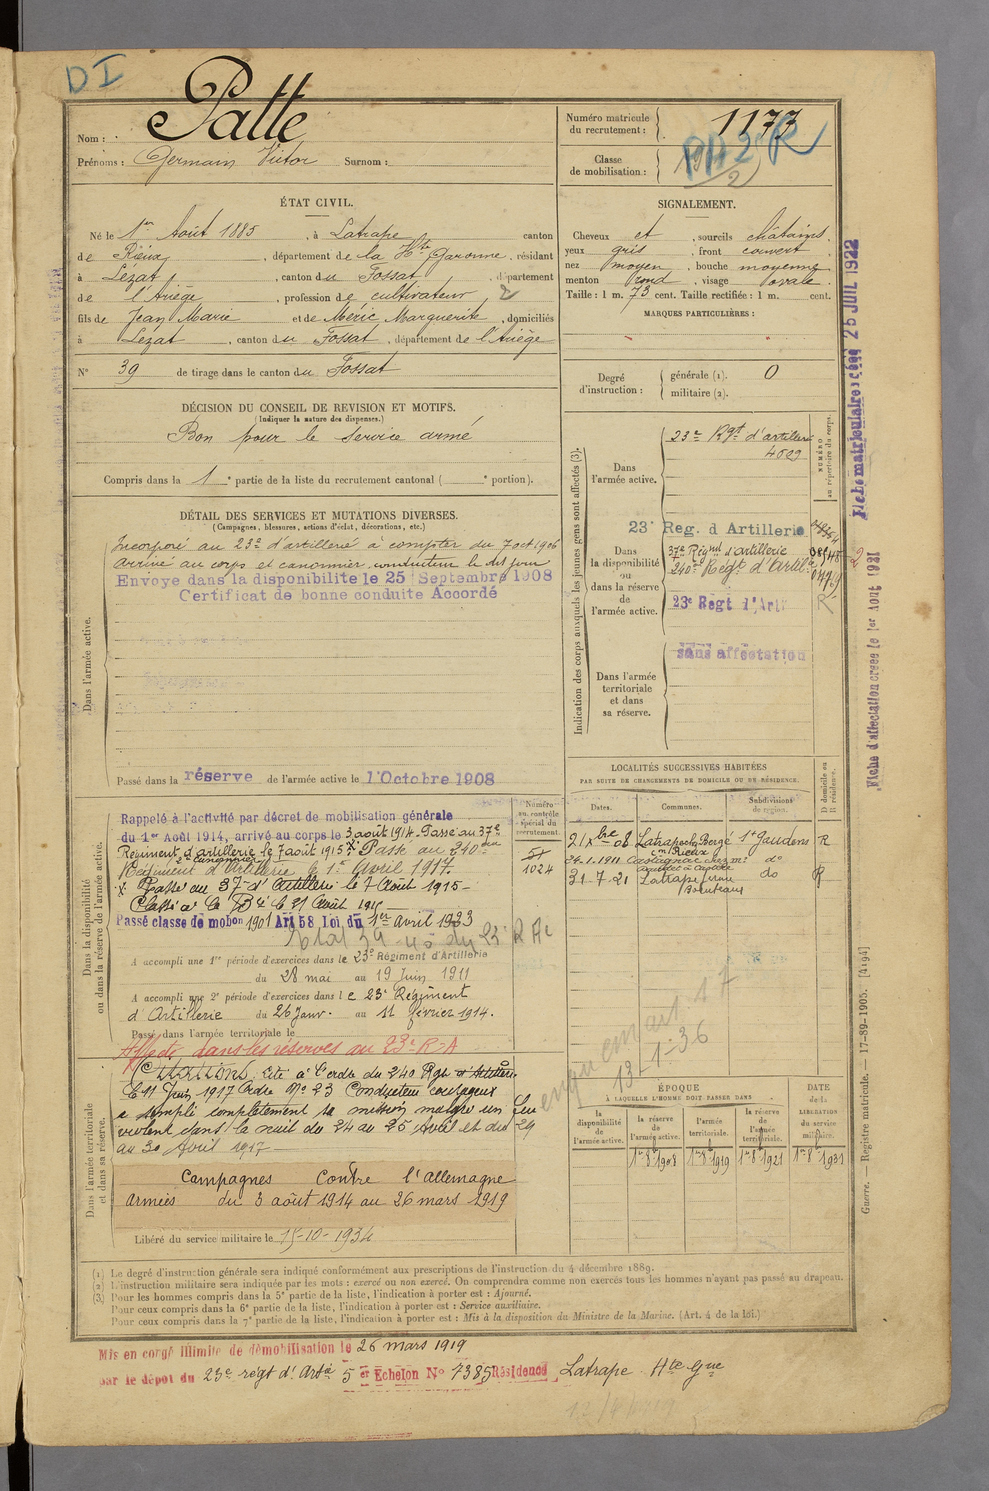 DI
Nom : Patte
Prénoms : Germain Victor Surnom :
Numéro matricule du recrutement : 1173
Classe de mobilisation :
ÉTAT CIVIL.
Né le 1er Août 1885, à Latrape canton
de Rieux, département de la Hte Garonne, résidant
à Lézat, canton du Fossat, département
de l'Ariège, profession de cultivateur 2
fils de Jean Marie et de Méric Marguerite, domiciliés
à Lézat, canton du Fossat, département de l'Ariège
N° 39 de tirage dans le canton du Fossat
SIGNALEMENT.
Cheveux et, sourcils châtains,
yeux gris, front couvert,
nez moyen, bouche moyenne,
menton rond, visage ovale.
Taille : 1 m. 73 cent. Taille rectifiée : 1 m. cent.
MARQUES PARTICULIÈRES :
Degré d'instruction : générale (1). 0
militaire (2).
DÉCISION DU CONSEIL DE REVISION ET MOTIFS.
(Indiquer la nature des dispenses.)
Bon pour le service armé
Compris dans la 1e partie de la liste du recrutement cantonal ( e portion).
DÉTAIL DES SERVICES ET MUTATIONS DIVERSES.
(Campagnes, blessures, actions d'éclat, décorations, etc.)
Dans l'armée active.
Incorporé au 23e d'artillerie à compter du 7 oct 1906
arrivé au corps et canonnier conducteur le dit jour
Envoye dans la disponibilite le 25 Septembre 1908
Certificat de bonne conduite Accordé
Passé dans la réserve de l'armée active le 1 Octobre 1908
Indication des corps auxquels les jeunes gens sont affectés (3).
NUMÉRO au répertoire du corps.
Dans l'armée active.
23e Rgt d'artillerie
Dans la disponibilité ou dans la réserve de l'armée active.
23e Reg. d Artillerie
37e Régnt d'artillerie
240e Regt d'Artil
23e Regt d'Art
R
Dans l'armée territoriale et dans sa réserve.
sans affectation
Fiche matriculaire créée 25 JUIL 1922
Fiche d'affectation creee le 1er Aout 1921
2
Dans la disponibilité ou dans la réserve de l'armée active.
Numéro au contrôle spécial du recrutement.
51
1024
Rappelé à l'activité par décret de mobilisation générale
du 1er Août 1914, arrivé au corps le 3 août 1914. Passé au 37eme
Régiment d'artillerie le 7 août 1915 X Passé au 240eme
Régiment d'Artillerie le 1er Avril 1917.
X Passé au 37e d'Artillerie le 7 Août 1915-
Passé classe de mobon 1901 Art 58 Loi du 1er Avril 1923
A accompli une 1re période d'exercices dans le 23e Régiment d'Artillerie
du 28 mai au 19 Juin 1911
A accompli une 2e période d'exercices dans le 23e Régiment
d'Artillerie du 26 Janv. au 11 février 1914.
Passé dans l'armée territoriale le
Affecté dans les réserves au 23e R-A
Dans l'armée territoriale et dans sa réserve.
Citations. Cité à l'ordre du 240 Rgt d'Artillerie
le 11 Juin 1917 Ordre N° 23 Conducteur courageux
a rempli complètement sa mission malgré un feu
violent dans la nuit du 24 au 25 Avril et du 29
au 30 Avril 1917
Campagnes Contre l'Allemagne
Armées du 3 août 1914 au 26 mars 1919
Libéré du service militaire le 15-10-1934
LOCALITÉS SUCCESSIVES HABITÉES
PAR SUITE DE CHANGEMENTS DE DOMICILE OU DE RÉSIDENCE.
Dates. Communes. Subdivisions de région. D domicile ou R résidence.
21 Xbre 08 Latrape St Gaudens R
24-1-1911 do
31-7-21 Latrape do R
13-1-36
ÉPOQUE
À LAQUELLE L'HOMME DOIT PASSER DANS
la disponibilité de l'armée active.
la réserve de l'armée active.
l'armée territoriale.
la réserve de l'armée territoriale.
DATE de la LIBÉRATION du service militaire.
1er 8bre 1908 1er 8bre 1919 1er 8bre 1921 1er 8bre 1931
Guerre. — Registre matricule. — 17-89-1905. [4194]
(1) Le degré d'instruction générale sera indiqué conformément aux prescriptions de l'instruction du 4 décembre 1889.
(2) L'instruction militaire sera indiquée par les mots : exercé ou non exercé. On comprendra comme non exercés tous les hommes n'ayant pas passé au drapeau.
(3) Pour les hommes compris dans la 5e partie de la liste, l'indication à porter est : Ajourné.
Pour ceux compris dans la 6e partie de la liste, l'indication à porter est : Service auxiliaire.
Pour ceux compris dans la 7e partie de la liste, l'indication à porter est : Mis à la disposition du Ministre de la Marine. (Art. 4 de la loi.)
Mis en congé illimité de démobilisation le 26 mars 1919
par le dépôt du 23e régt d'Artie 5er Echelon N° 7385 Résidence Latrape Hte Gne